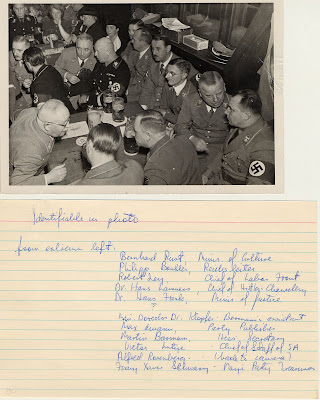 Identifiable in photo
from extreme left:
Bernhard Rust, Minis of Culture
Philipp Bouhler, Reichsleiter
Robert Ley Chief of Labor Front
Dr. Hans Lammers, Chief of Hitler Chancellery
Dr. Hans Frank, Minis of Justice
?
Dr. Klopfer Bormann's assistant
Max Amann, Party Publisher
Martin Bormann, Secretary
Victor Lutze Chief of Staff of SA
Alfred Rosenberg camera)
Franz Xaver Schwarz Party